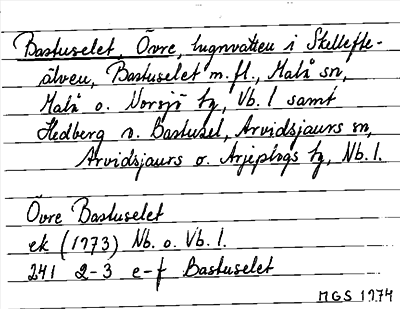 Bastuselet, Övre, lugnvatten i Skellefte-
älven, Bastuselet m.fl., Malå sn,
Malå o. Norsjö tg, Vb. l samt
Hedberg o. Bastusel, Arvidsjaurs sn,
Arvidsjaurs o. Arjeplogs tg, Nb. l.
Övre Bastuselet
ek (1973) Nb. o. Vb. l.
241 2-3 e-f Bastuselet
MGS 1974